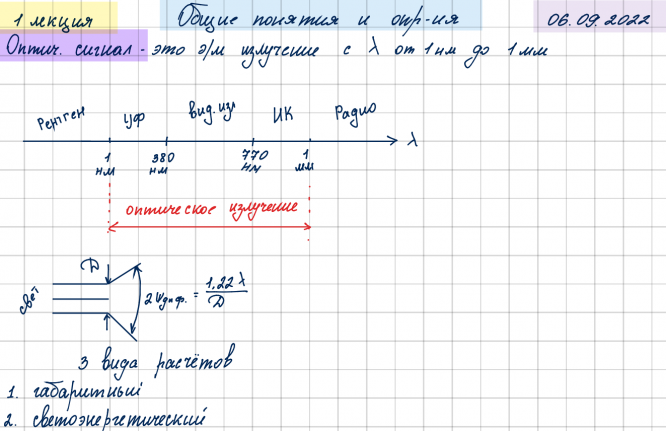 1 лекция Общие понятия и опр-ия 06.09.2022
Оптич. сигнал - это э/м излучение с λ от 1 нм до 1 мм
Рентген УФ вид. изл ИК Радио
λ
1 нм 380 нм 770 нм 1 мм
оптическое излучение
D
свет
2ψдиф. = 1,22 λ / D
3 вида расчётов
1. габаритный
2. светоэнергетический